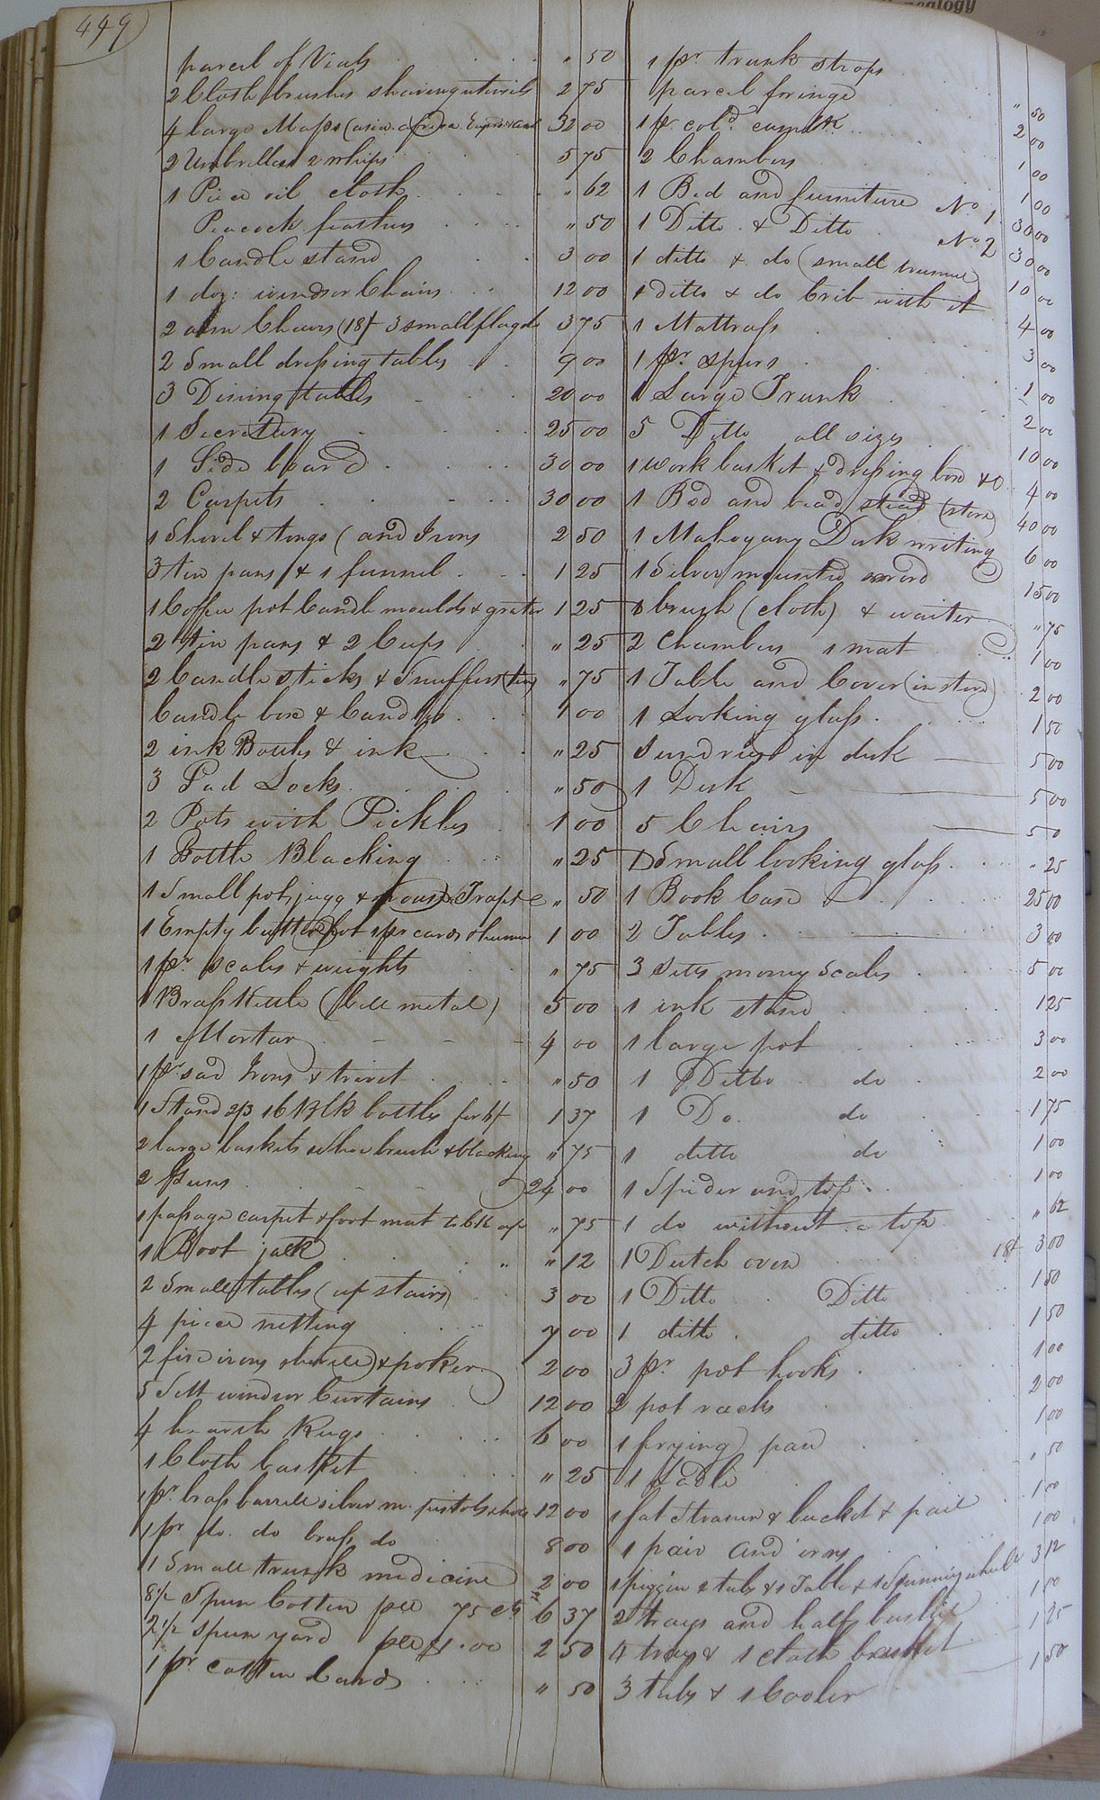 449
ealogy
parcel of Vials " 50
2 Cloth brushes shaving utensils 2 75
4 large Maps (asia africa Europe & 32 00
2 Umbrellas 2 whips 5 75
1 Piece oil cloth " 62
Peacock feathers " 50
1 Candle stand 3 00
1 doz: windsor Chairs 12 00
2 arm Chairs (18/ 3 small flag do 3 75
2 Small dressing tables 9 00
3 Dining tables 20 00
1 Secretary 25 00
1 Side board 30 00
2 Carpets 30 00
1 Shovel & tongs (and Irons 2 50
3 tin pans & 1 funnel 1 25
1 Coffee pot Candle moulds & grater 1 25
2 tin pans & 2 Cups " 25
2 Candle sticks & Snuffers (tin) " 75
Candle box & Candles 1 00
2 ink Bottles & ink " 25
3 Pad Locks " 50
2 Pots with Pickles 1 00
1 Bottle Blacking " 25
1 Small pot, jugg & mouse Trap &c " 50
1 Empty butter pot 1 pr cards 1 hammer 1 00
1 pr. scales & weights " 75
1 Brass Kettle (bell metal) 5 00
1 Mortar 4 00
1 pr sad Irons & trivet " 50
1 Stand 2/3 16 Blk bottles for 6/ 1 37
2 large baskets shoe brush & blacking " 75
2 Guns 24 00
1 passage carpet & foot mat " 75
1 Boot jack " 12
2 Small tables (up stairs) 3 00
4 piece netting 7 00
2 fire irons shovel & poker 2 00
5 Sett window Curtains 12 00
4 hearth Rugs 6 00
1 Cloth basket " 25
1 pr. brass barrell silver m. pistols 12 00
1 pr do. do brass do 8 00
1 Small trunk medicine 2 00
8½ Spun Cotten per 75 Cts 6 37
2½ spun yard per $1.00 2 50
1 pr cotten Cards " 50
1 pr. trunk straps " 50
parcel fringe 2 00
1 pr cold. 1 00
2 Chambers 1 00
1 Bed and furniture No 1 30 00
1 Ditto & Ditto No 2 30 00
1 ditto & do (small 10 00
1 ditto & do Crib with it 4 00
1 Mattrass 3 00
1 pr. spurs 1 00
1 Large Trunk 2 00
5 Ditto all sizes 10 00
1 work basket & dressing box &c 4 00
1 Bed and bead stead (store) 40 00
1 Mahogany Desk writing 6 00
1 Silver mounted sword 15 00
1 brush (cloth) & waiter " 75
2 Chambers 1 mat 1 00
1 Table and Cover (in store) 2 00
1 Looking glass 1 50
Sundries in desk 5 00
1 Desk 5 00
5 Chairs 50
1 Small looking glass " 25
1 Book Case 25 00
2 Tables 3 00
3 Setts money Scales 5 00
1 ink stand 1 25
1 large pot 3 00
1 Ditto do 2 00
1 Do. do 1 75
1 ditto do 1 00
1 Spider and top 1 00
1 do without a top " 62
1 Dutch oven 18/ 3 00
1 Ditto Ditto 1 50
1 ditto ditto 1 50
3 pr. pot hooks 1 00
2 pot racks 2 00
1 frying pan 1 00
1 Ladle " 50
1 fat Strainer & bucket & pail 1 00
1 pair and irons 1 00
1 piggin & tub & 1 Table & 1 Spinning wheel 3 12
2 trays and half bushel 1 50
4 trays & 1 cloth basket 1 25
3 tubs & 1 Cooler 1 50